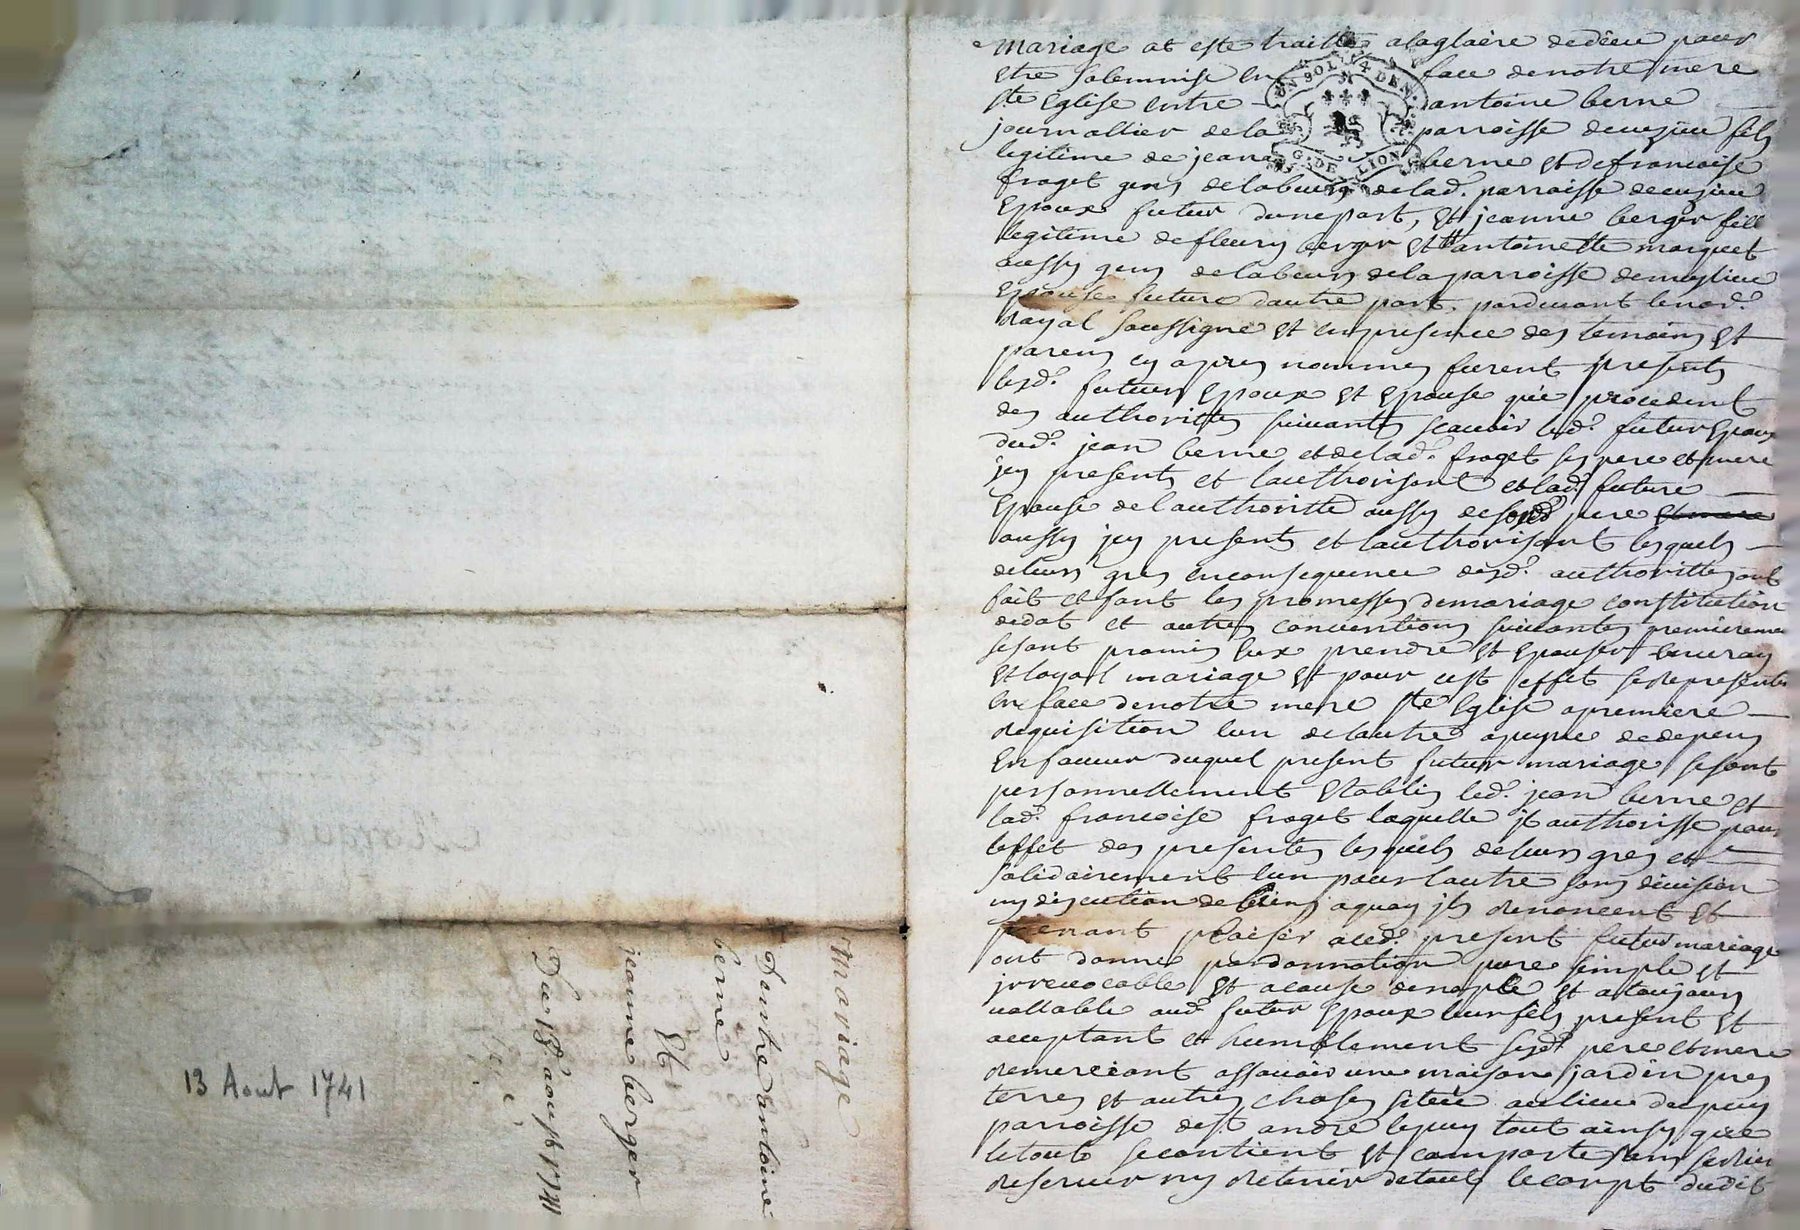 13 Aout 1741
mariage
D'entre antoine
berne
Et
jeanne berger
Du 18e aoust 1741
mariage at este traitté alaglaire dedieu pour
etre solemnise en face denotre mere
ste Eglise entre antoine berne
journallier dela parroisse decuzieu fils
legitime de jean berne et defrancoise
froget gens delabeurs delad. parroisse decuzieu
Epoux futur dunepart, Et jeanne berger fille
legitime defleury berger Et antoinette marquet
aussy gens delabeurs delaparroisse
Epouse future dautre part, pardevant lenore
Royal soussigné Et enpresence des temoins Et
parens cy apres nommes furent presents
lesd. futurs Epoux Et Epouse qui procedent
des authorittes suivantes scauoir led. futur Epoux
dud. jean berne et delad. froget ses pere et mere
jcy presents et lauthorisant et lad. future
Epouse delauthoritté aussy desond. pere et mere
aussy jcy present et lauthorisant lesquels
deleurs gres enconsequence desd. authorittes ont
fait et font les promesses demariage constitution
dedot et autres conventions suiuantes premierement
sesont promis eux prendre Et Epouser en uray
Et loyal mariage Et pour cest effet serepresenter
en face denotre mere ste Eglise apremiere
requisition lun delautre apeyne dedepens
En faueur duquel present futur mariage sesont
personnellement Etablis led. jean berne et
lad. francoise froget laquelle jl authorisse pour
leffet des presentes lesquels deleurs gres et
solidairement lun pour lautre sans diuision
ny discution debiens aquoy jls renoncent Et
prenant plaisir aud. present futur mariage
ont donne pardonnation pure simple et
jrreuocable Et acause denopce Et atoujours
uallable aud. futur Epoux leur fils present Et
acceptant et humblement sesd. pere et mere
remerciant assauoir une maison jardin pres
terres Et autres choses situé aulieu dupuy
parroisse dest andre lepuy tout ainsy que
letout secontient Et comporte sans serien
reseruer ny retenir detout lecorpt dudit
UN SOL 4 DEN.
G. DE LION